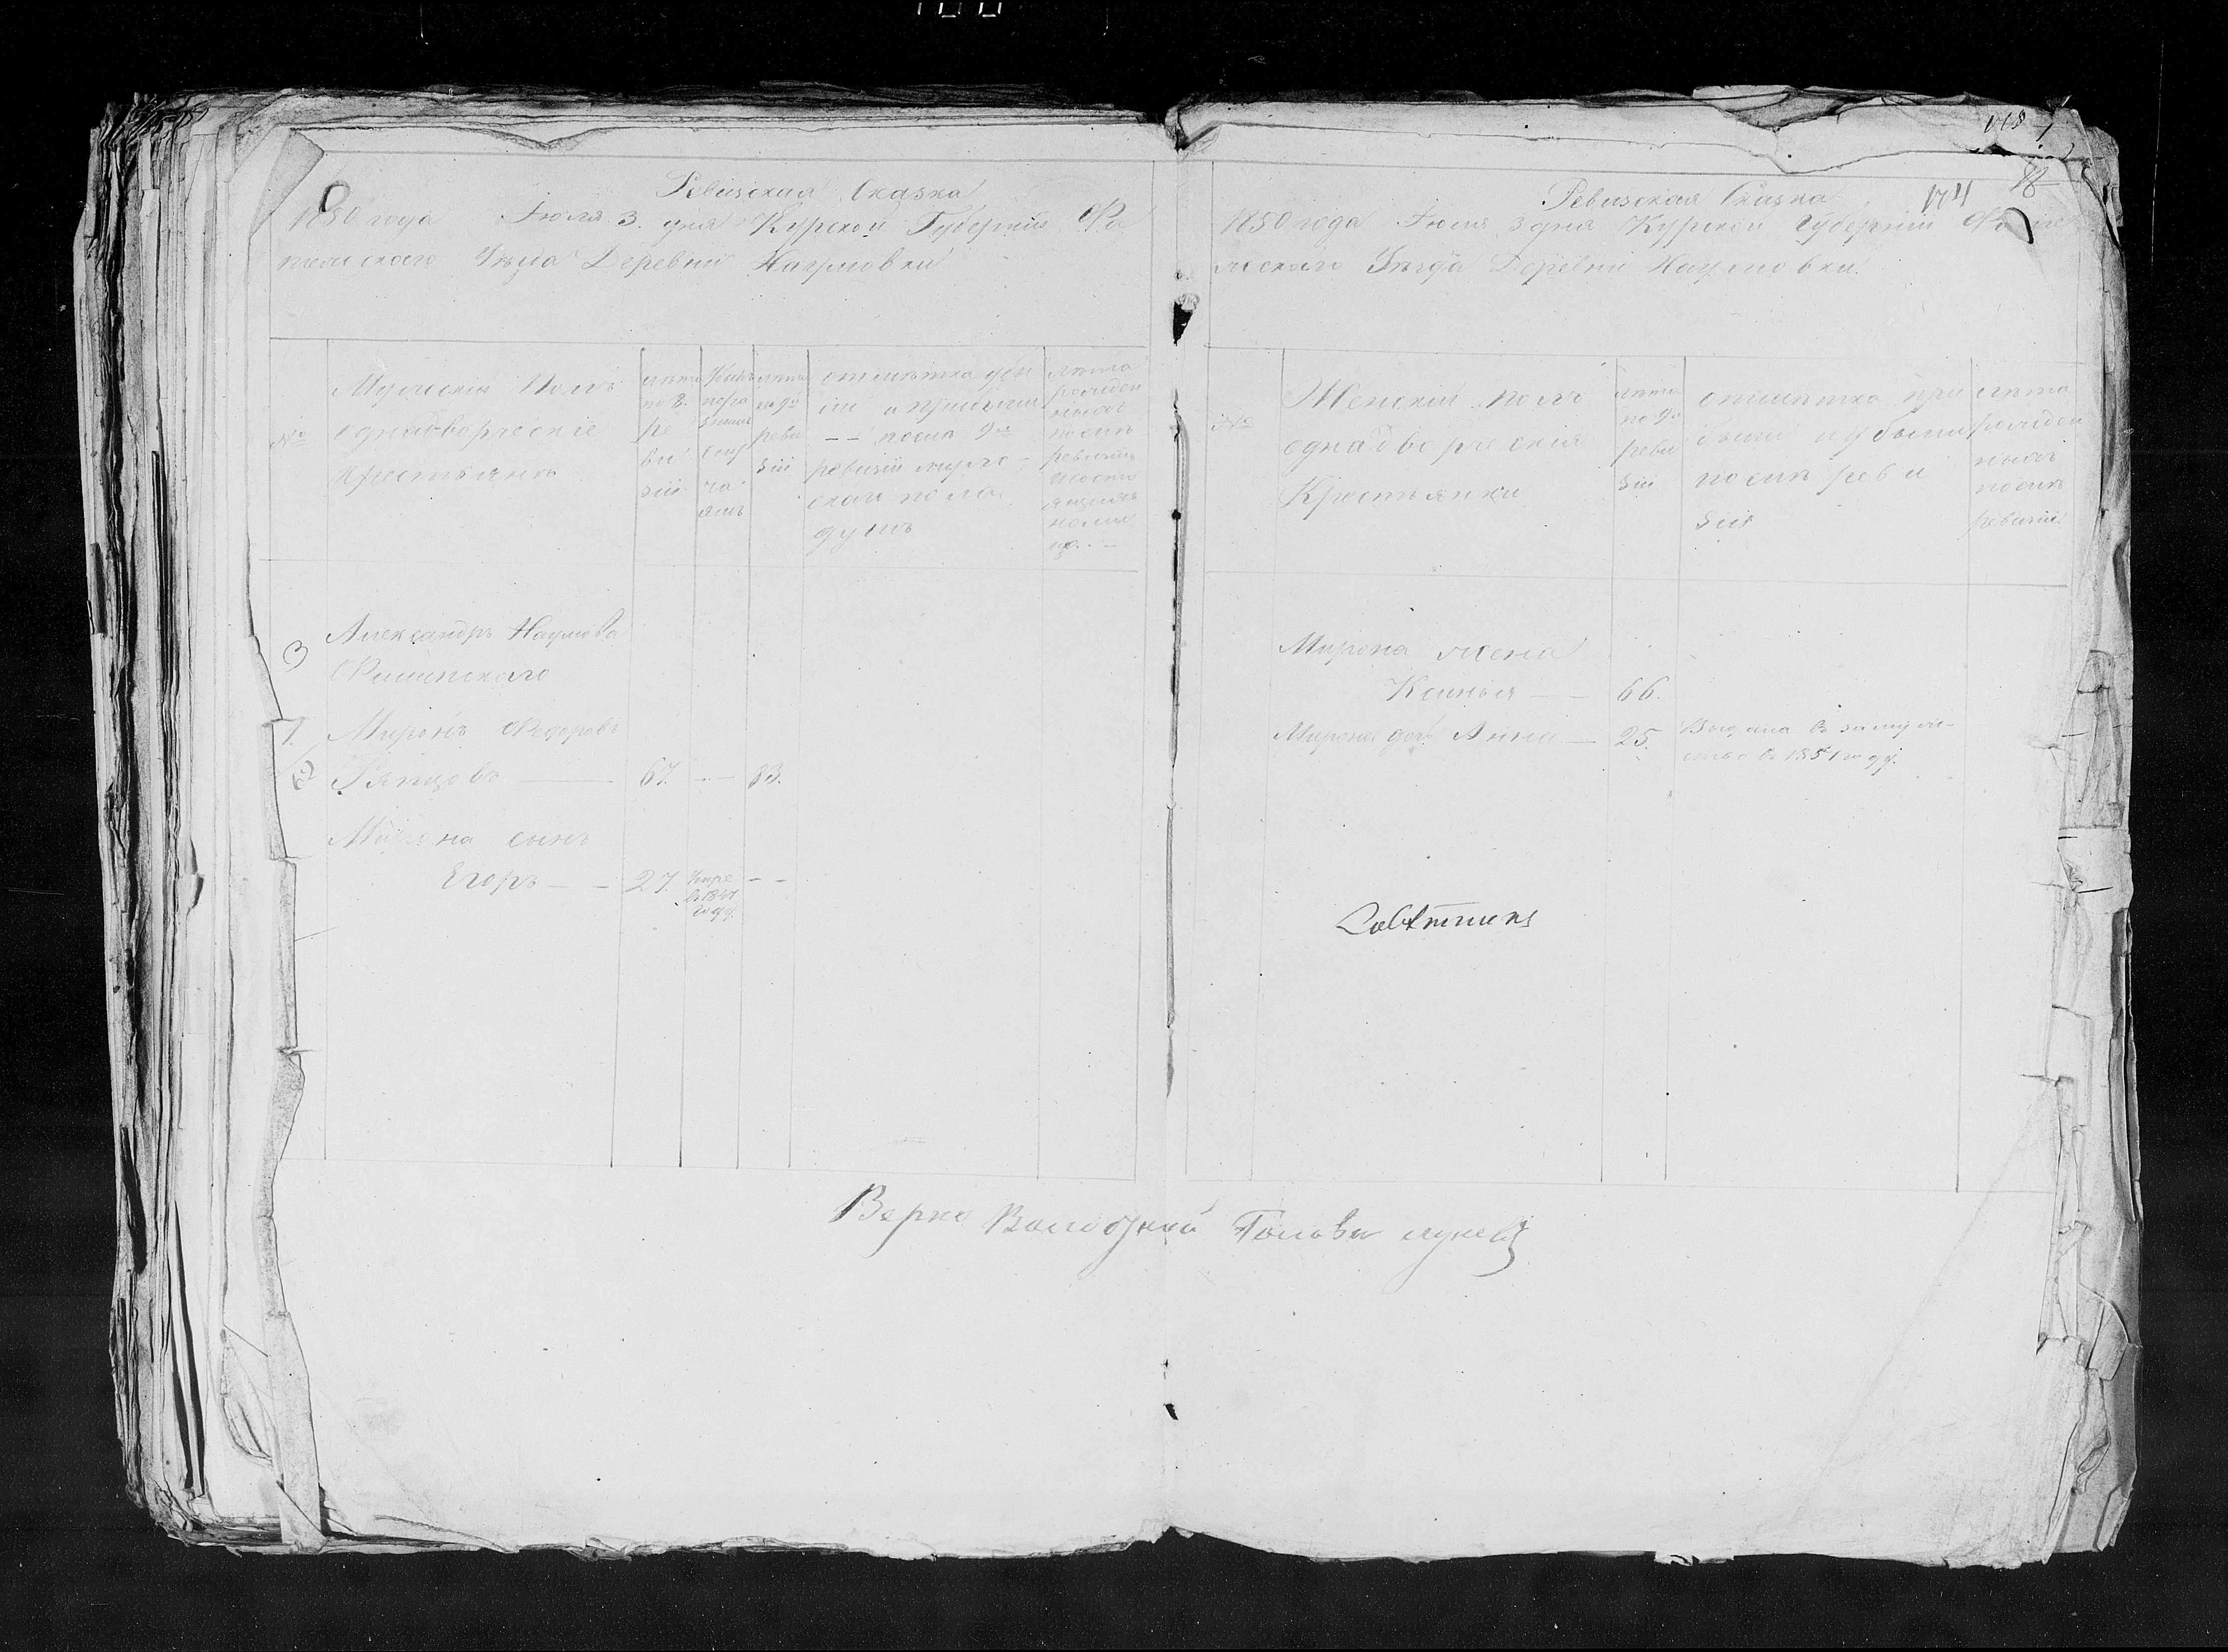 Ревизская Сказка
1850 года Іюля 3. дня Курской Губерніи Фа
тежскаго Уезда Деревни Наумовки
№
Мужескій Полъ
однадворческіе
Крестьяне
лѣта
по 8.
ре
ви
зіи.
лѣта
по 9й
реви
зіи
отмѣтка убы
ли и прибыли
-- после 9й
ревизіи муже-
скаго пола
душъ
лѣта
рожден
ныхъ
после
ревизіи
3
Александръ Наумова
1.
Миронъ Федоровъ
62
67. -- 83.
Мирона сынъ
Егоръ - - 27. Умре - -
в 1847
году.
118
174
18
Ревизская Сказка
1850 года Іюля 3 дня Курской Губерніи Фате
жскаго Уезда Деревни Наумовки.
№
Женскій полъ
однадворческія
Крестьянки
лѣта
по 9й
реви
зіи
отмѣтка при
были и убыли
после реви
зіи
лѣта
рожден
ныхъ
после
ревизіи
Мирона жена
Ксинья — 66.
Мирона дочь Анна — 25. Выдана в замуже-
ство в 1851 году.
Совѣтникъ
Верно Волостной Голова